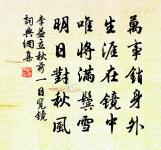 萬事銷身外
生涯在鏡中
唯將滿鬢雪
明日對秋風
李益立秋前一日覽鏡
詞典網集